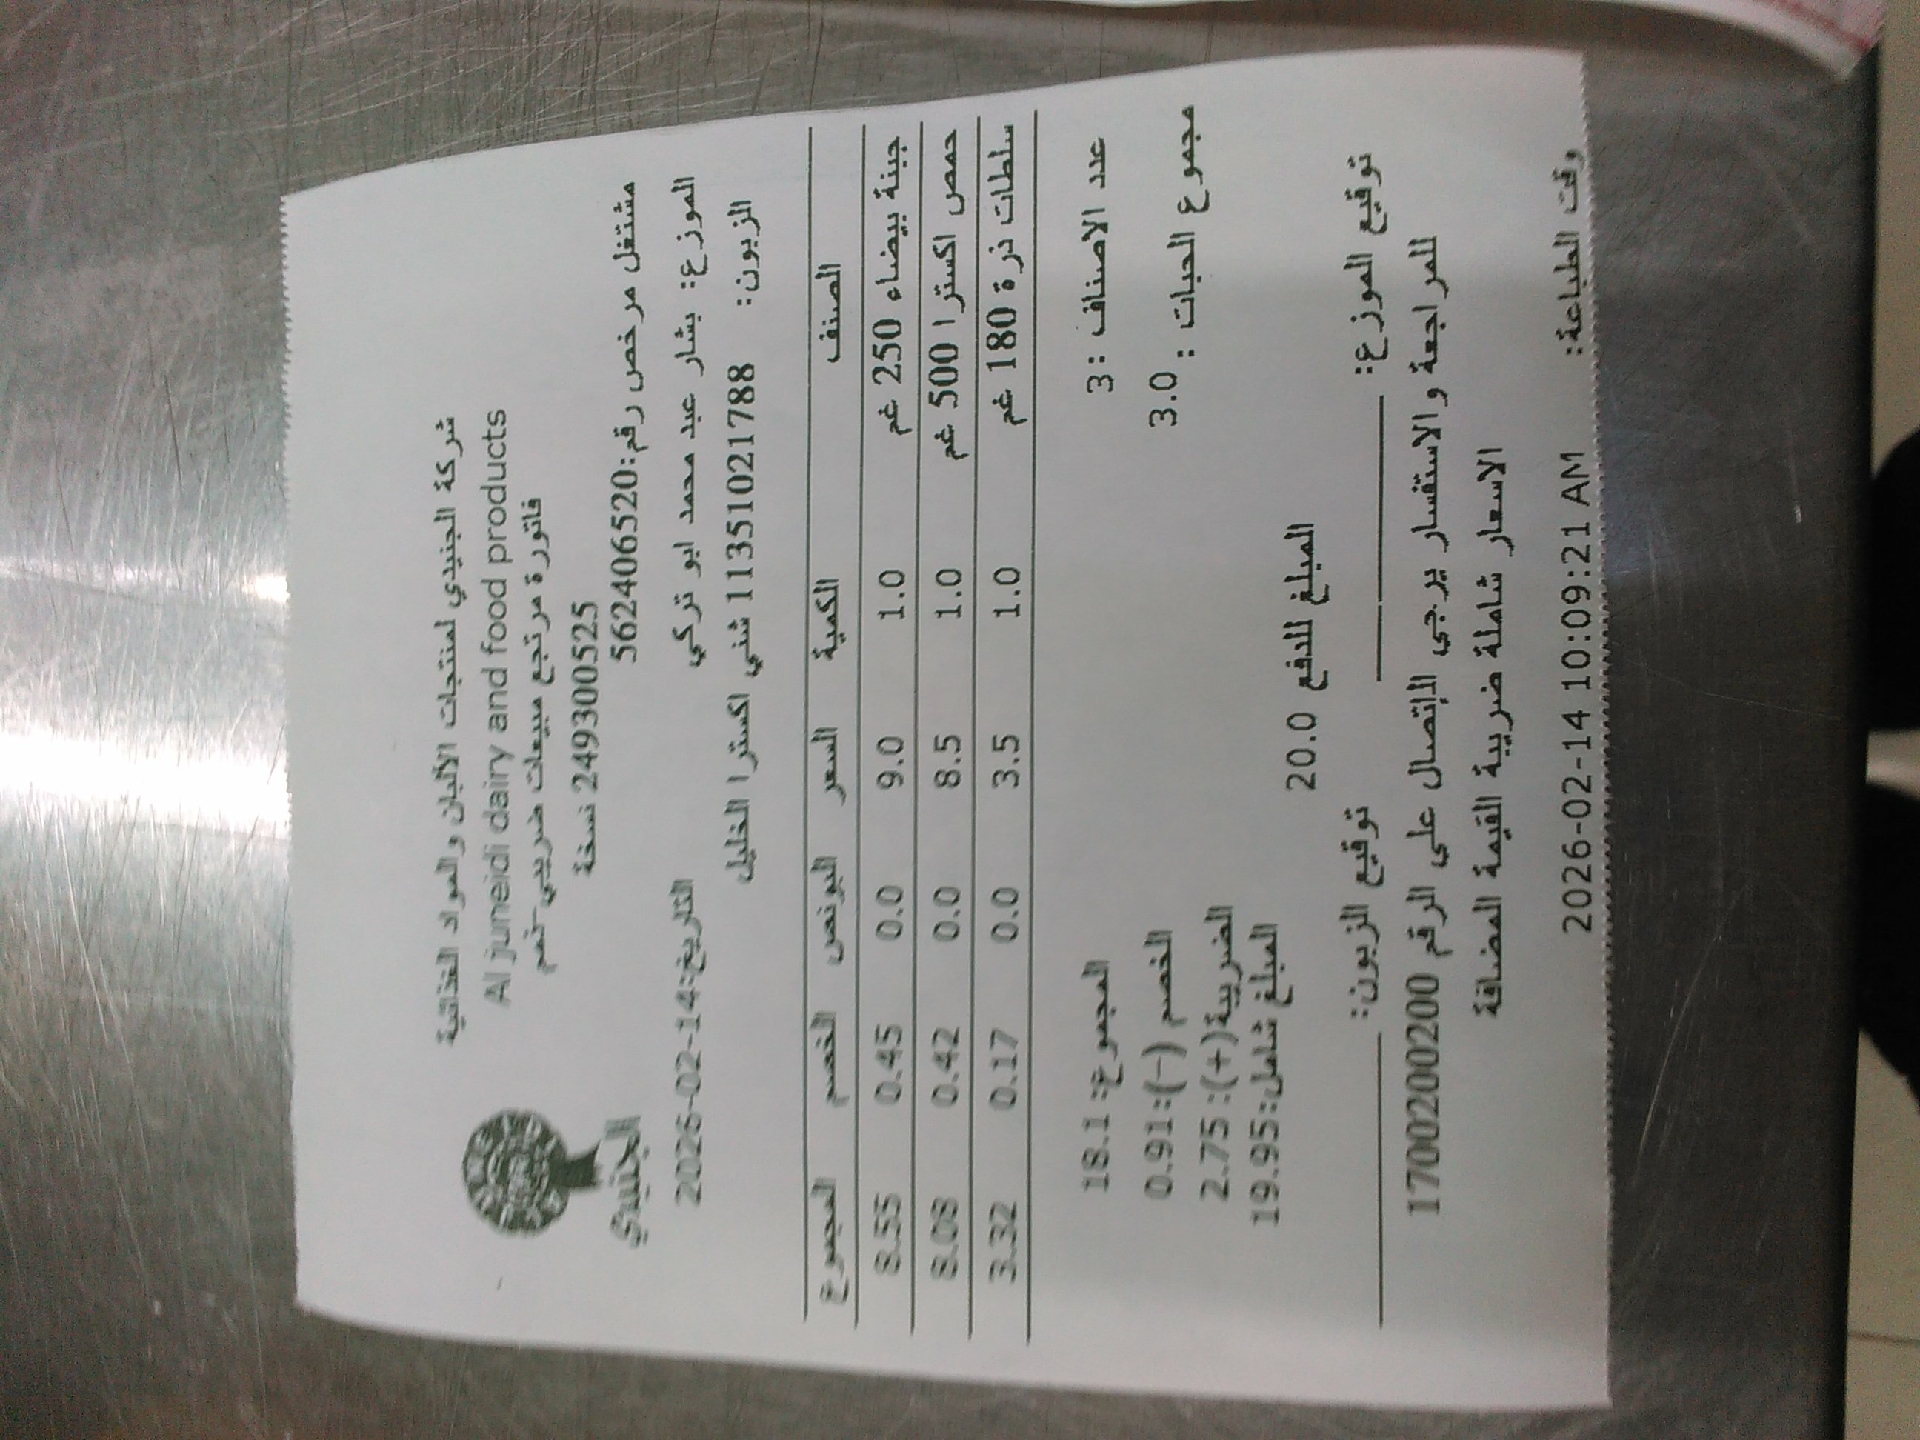 شركة الجنيدي لمنتجات الألبان والمواد الغذائية
Al juneidi dairy and food products
فاتورة مرتجع مبيعات ضريبي-خصم
249300525 نسخة
مشتغل مرخص رقم:562406520
الجنيدي
الموزع: بشار عبد محمد ابو تركي
التاريخ:2026-02-14
الزبون: 11351021788 شني اكسترا الخليل
الصنف الكمية السعر البونص الخصم المجموع
جبنة بيضاء 250 غم 1.0 9.0 0.0 0.45 8.55
حمص اكسترا 500 غم 1.0 8.5 0.0 0.42 8.08
سلطات ذرة 180 غم 1.0 3.5 0.0 0.17 3.32
عدد الاصناف : 3 المجموع: 18.1
مجموع الحبات : 3.0 الخصم (-):0.91
الضريبة(+): 2.75
المبلغ شامل:19.95
المبلغ للدفع 20.0
توقيع الموزع: توقيع الزبون:
للمراجعة والاستفسار يرجى الإتصال على الرقم 1700200200
الاسعار شاملة ضريبة القيمة المضافة
وقت الطباعة: 2026-02-14 10:09:21 AM